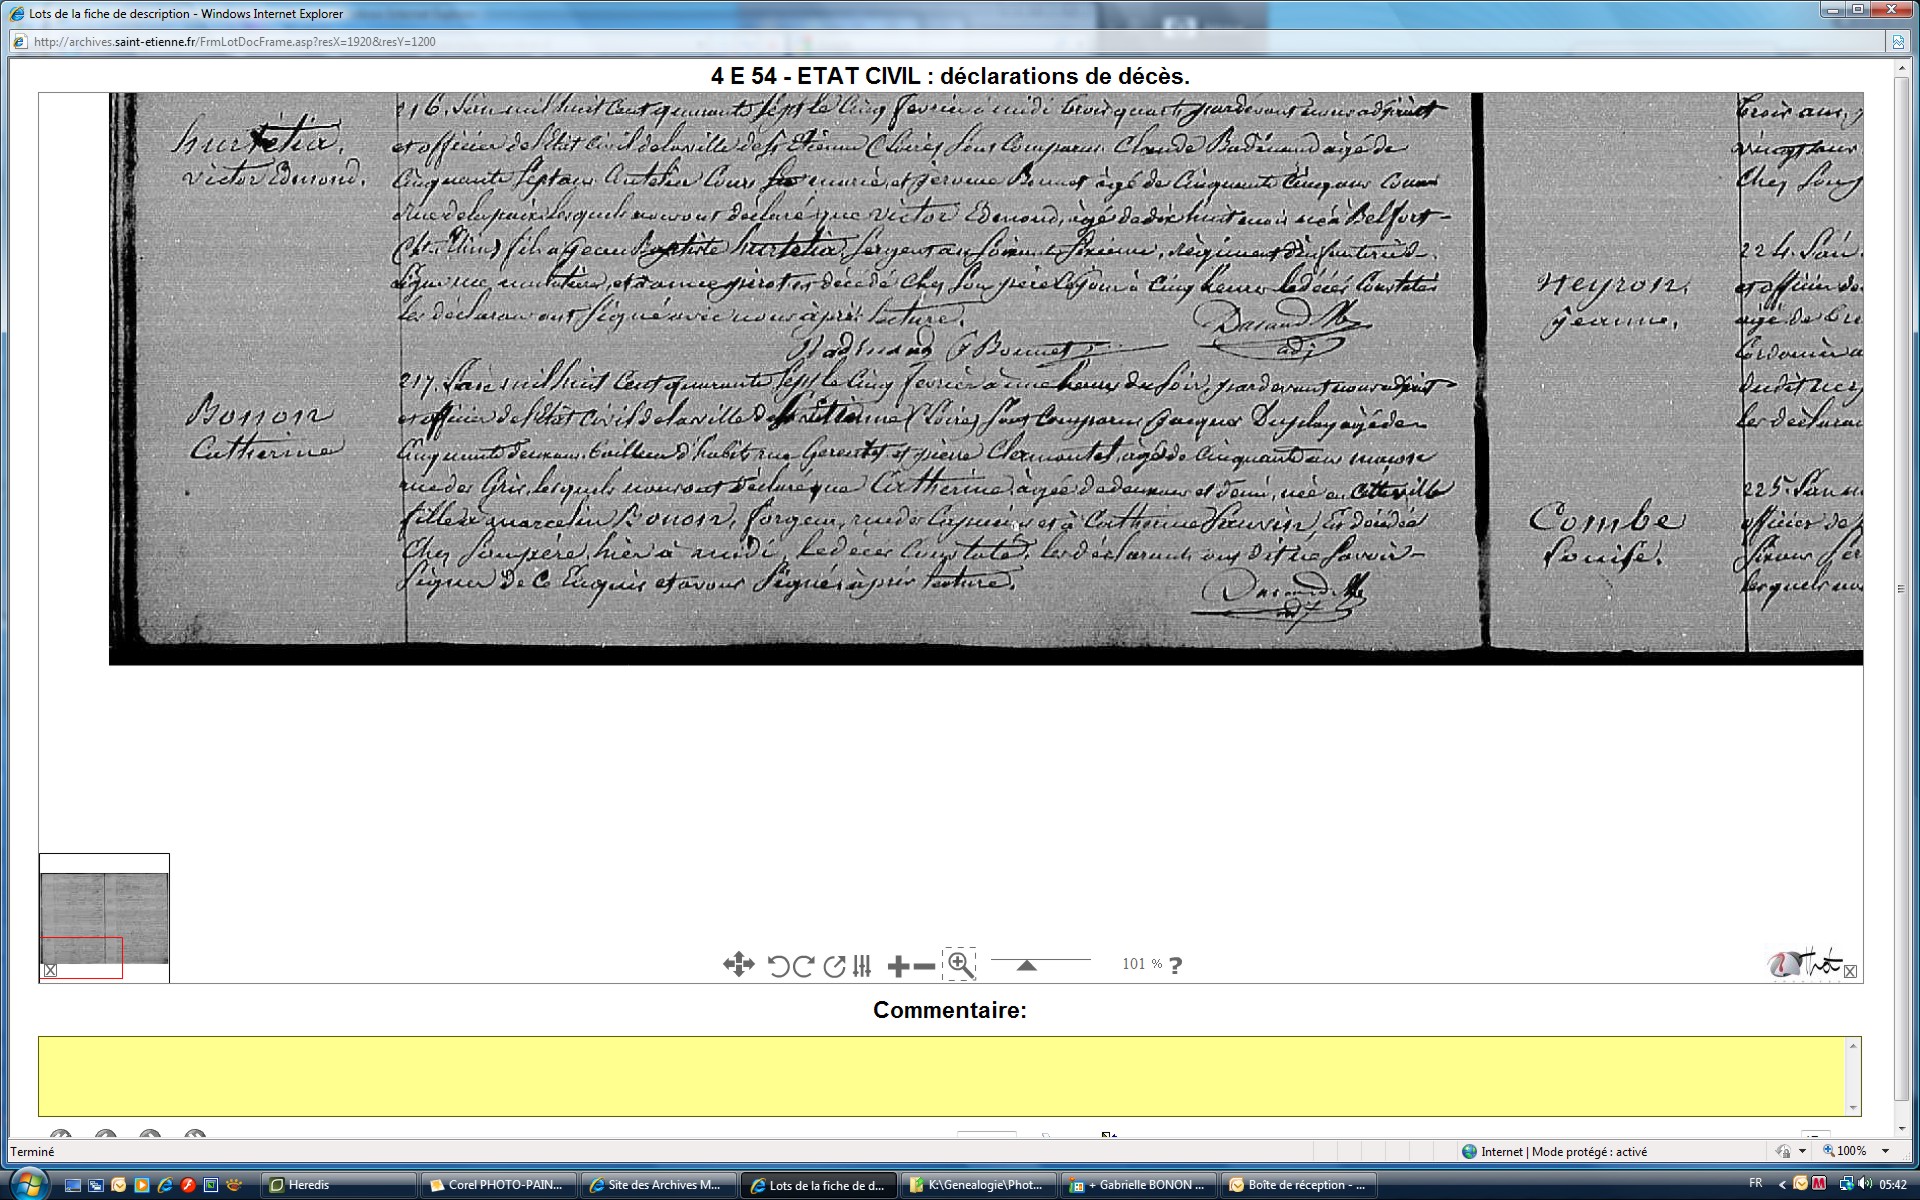 Lots de la fiche de description - Windows Internet Explorer
http://archives.saint-etienne.fr/FrmLotDocFrame.asp?resX=1920&resY=1200
4 E 54 - ETAT CIVIL : déclarations de décès.
hurtelia.
victor Edmond.
216. L'an mil huit cent quarante Sept le Cinq fevrier à midi trois quarts, pardevant nous adjoint
et officier de l'Etat Civil de la ville de St Etienne (Loire) Sont Comparus Claude Badinand agé de
Cinquante Sept ans Cours et jerome Bonnet agé de Cinquante Cinq ans
rue de la paix lesquels nous ont déclaré que victor Edmond, agé de dix huit mois né à Belfort
fils à jean Baptiste hurtelia Sergent au Soixante Sixième régiment d'infanterie de
ligne et décédé Chez Son père Ce jour à Cinq heures le décès Constaté
les déclarants ont Signé avec nous après lecture.
Badinand Bonnet
Durand
adj
Bonon
Catherine
217. L'an mil huit Cent quarante Sept le Cinq fevrier à une heure du Soir, pardevant nous adjoint
et officier de l'Etat Civil de la ville de St Etienne (Loire) Sont Comparus jacques Duplay agé de
Cinquante deux ans tailleur d'habits rue Gerentet et pierre Clermontet, agé de Cinquante ans maçon
rue des Gris, lesquels nous ont déclaré que Catherine agée de deux ans et demi, née en Cette ville
fille à marcelin Bonon, forgeur, rue des Capucins et à Catherine Est décédée
Chez Son père, hier à midi, le décès Constaté, les déclarants ont dit ne Savoir
Signer de Ce Enquis et avons Signé après lecture.
Durand
adj
neyron.
jeanne.
Combe
Louise.
trois ans,
vingt
Chez Son
224. L'an
et officier de
agé de
Cordonnier
les déclarants
225. L'an
officier de
lesquels
101 % ?
Thot
Commentaire:
Terminé
Internet | Mode protégé : activé
100%
Heredis
Corel PHOTO-PAIN...
Site des Archives M...
Lots de la fiche de d...
K:\Genealogie\Phot...
+ Gabrielle BONON ...
Boîte de réception - ...
FR
05:42